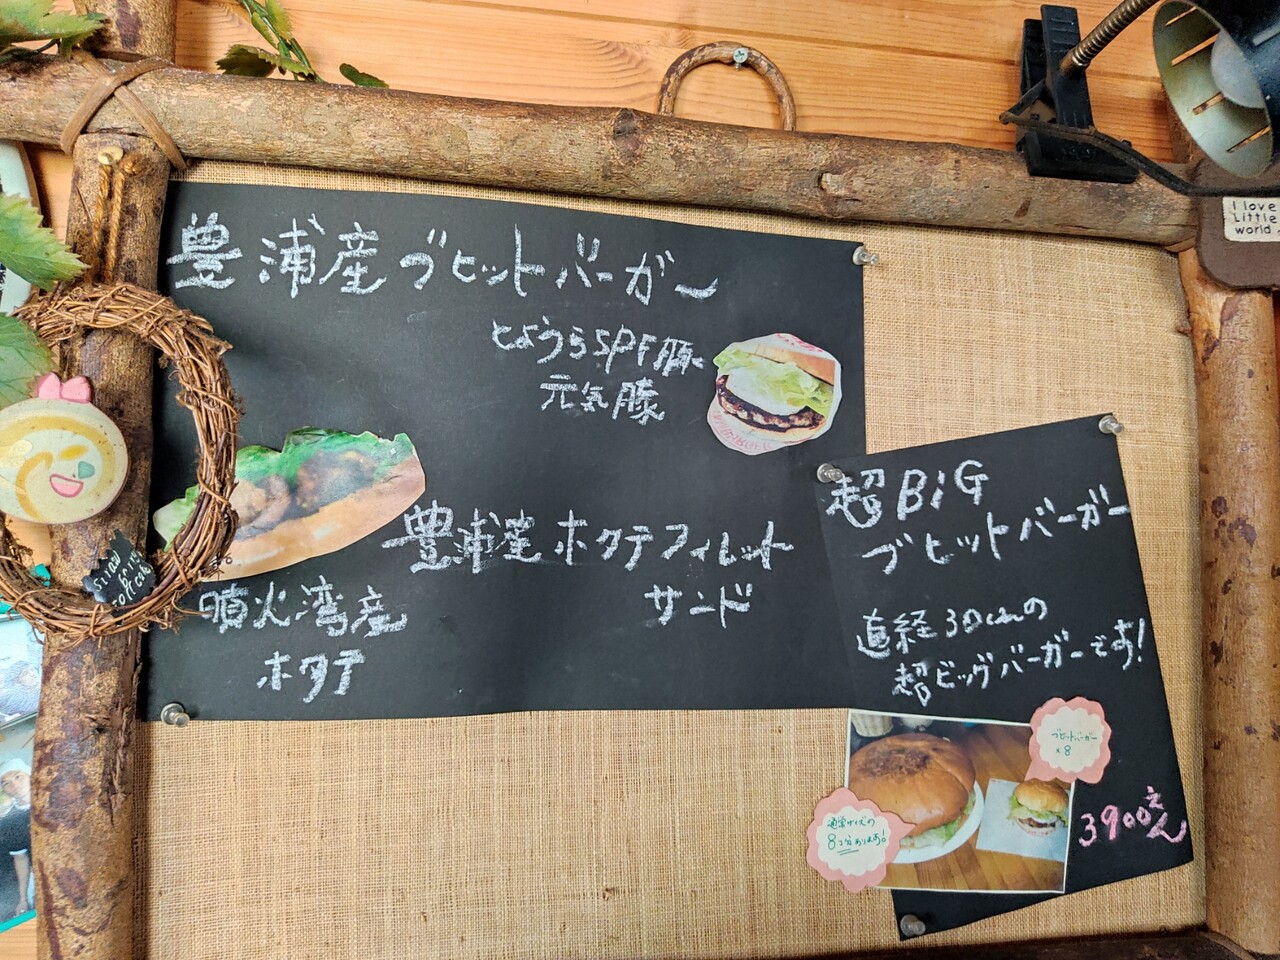 豊浦産ブヒットバーガー
とようらSPF豚
元気豚
豊浦産ホタテフィレット
サンド
噴火湾産
ホタテ
超BiG
ブヒットバーガー
直経30cmの
超ビッグバーガーです!
ブヒットバーガー
×8
通常サイズの
8コ分あります!
3900えん
I love
Little
world